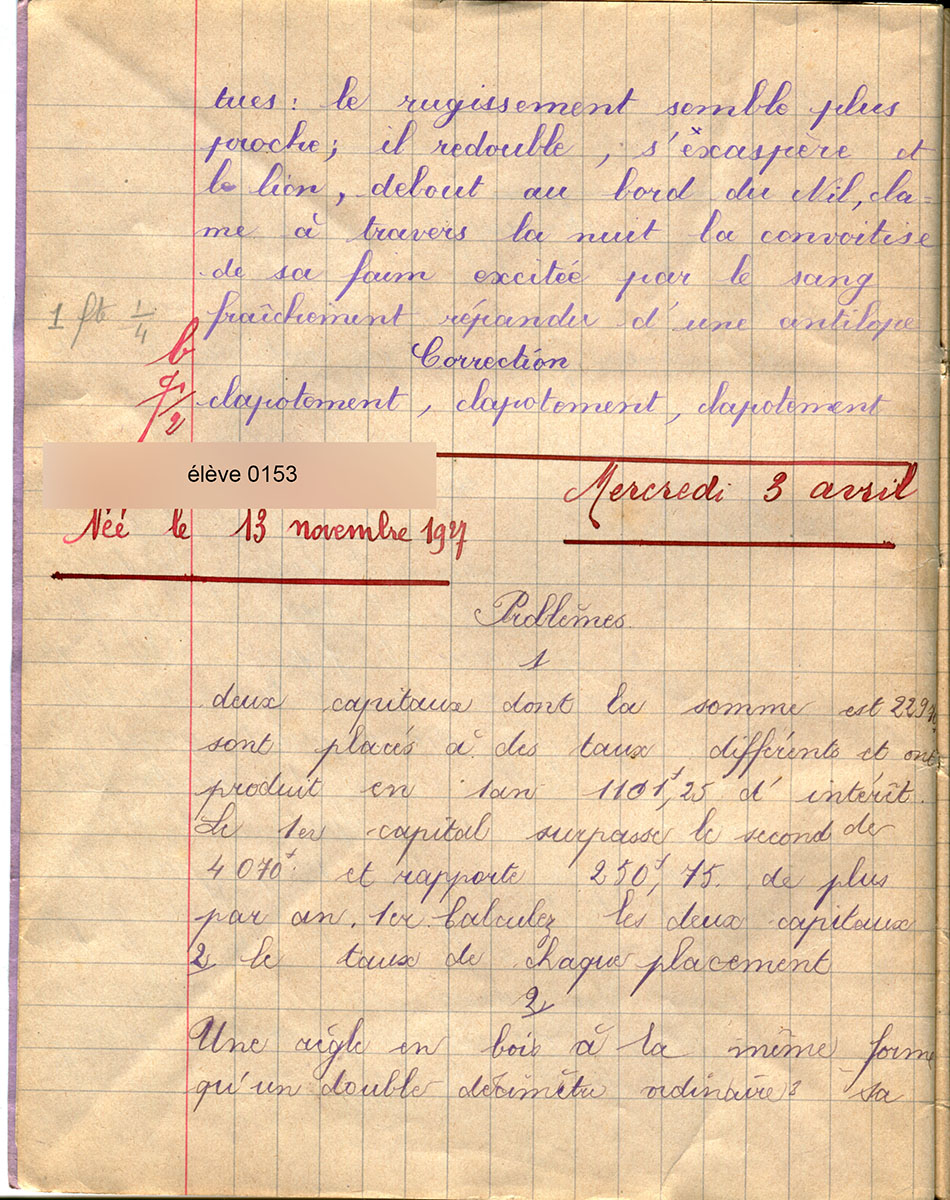 tues : le rugissement semble plus
proche ; il redouble , s'éxaspère et
le lion, debout au bord du Nil, cla-
me à travers la nuit la convoitise
de sa faim excitée par le sang
fraîchement répandu d'une antilope
1 fte 1/4
Correction
b
clapotement , clapotement , clapotement
élève 0153
Mercredi 3 avril
Néé le 13 novembre 1927
Problèmes
1
deux capitaux dont la somme est
sont placés à des taux différents et ont
produit en 1an 1101f,25 d'intérêt.
Le 1er capital surpasse le second de
4 070f. et rapporte 250f,75. de plus
par an. 1er Calculez les deux capitaux
2 le taux de chaque placement
2
Une règle en bois à la même forme
qu'un double décimètre ordinaire : sa